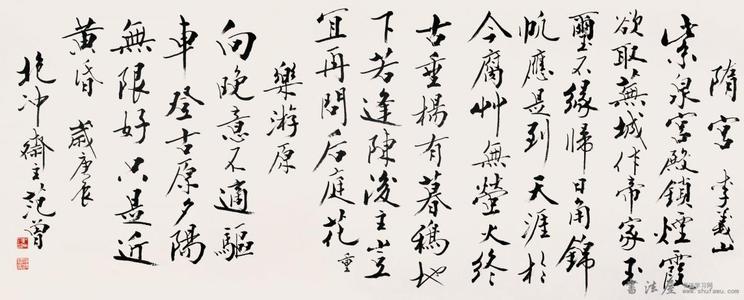 隋宫 李義山
紫泉宫殿鎖煙霞
欲取蕪城作帝家玉
璽不緣歸日角錦
帆應是到天涯於
今腐艸無螢火終
古垂楊有暮鴉地
下若逢陳後主豈
宜再問后庭花 重
樂游原
向晚意不適驅
車登古原夕陽
無限好只是近
黄昏 歲庚辰
抱冲齋主范曾
書法屋
www.shufawu.com